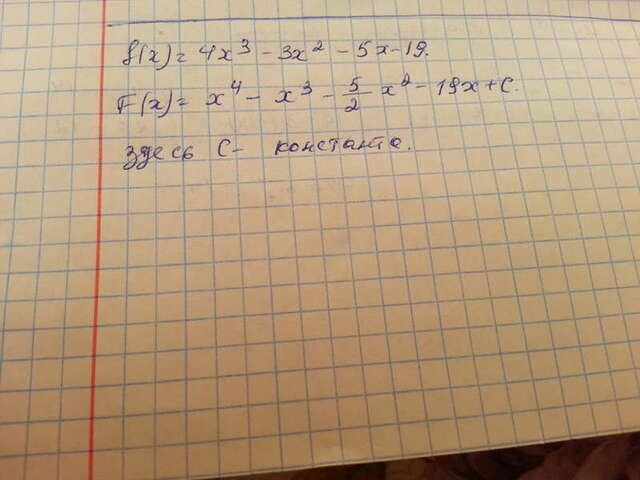 f(x) = 4x³ - 3x² - 5x - 19.
F(x) = x⁴ - x³ - 5/2 x² - 19x + C.
здесь C - константа.